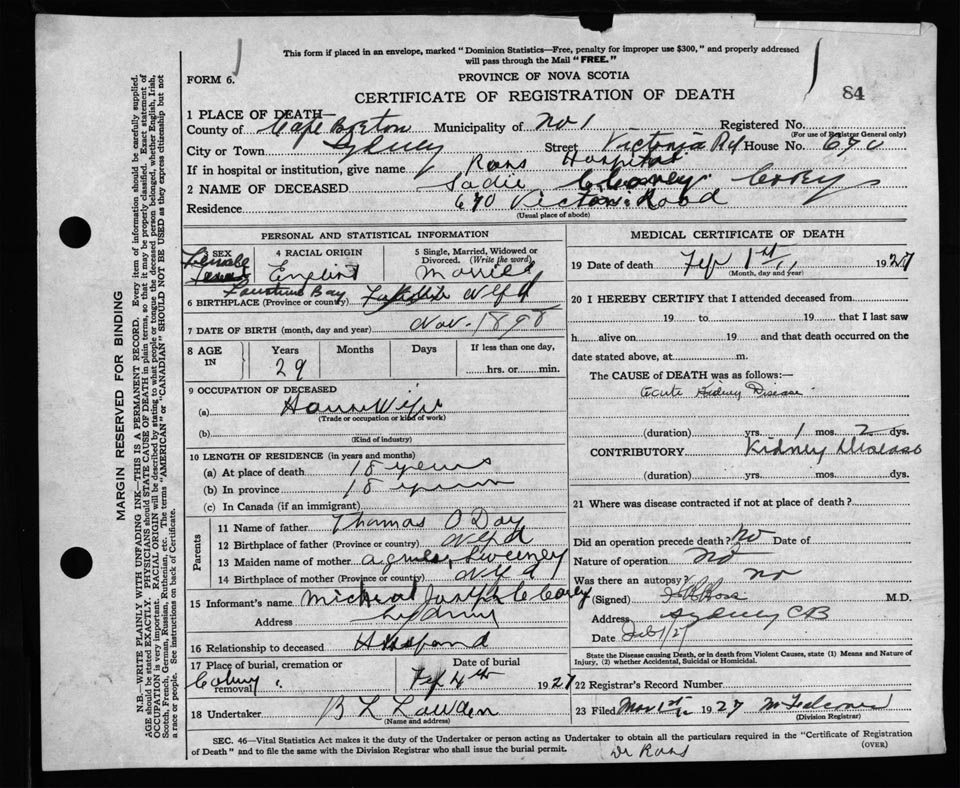 This form if placed in an envelope, marked "Dominion Statistics—Free, penalty for improper use $300," and properly addressed
will pass through the Mail "FREE."
FORM 6.
PROVINCE OF NOVA SCOTIA
CERTIFICATE OF REGISTRATION OF DEATH
84
1 PLACE OF DEATH—
County of Cape Breton Municipality of No 1 Registered No.
(For use of Registrar General only)
City or Town Sydney Street Victoria Rd House No. 670
If in hospital or institution, give name Ross Hospital
2 NAME OF DECEASED Sadie Corey
Residence 670 Victoria Road
(Usual place of abode)
PERSONAL AND STATISTICAL INFORMATION
3 SEX Female
4 RACIAL ORIGIN English
5 Single, Married, Widowed or Divorced. (Write the word) Married
6 BIRTHPLACE (Province or country) Bay Nfld
7 DATE OF BIRTH (month, day and year) Nov. 1898
8 AGE IN Years Months Days If less than one day,
29 hrs. or min.
9 OCCUPATION OF DECEASED
(a) House Wife
(Trade or occupation or kind of work)
(b)
(Kind of industry)
10 LENGTH OF RESIDENCE (in years and months)
(a) At place of death 18 years
(b) In province 18 years
(c) In Canada (if an immigrant)
Parents
11 Name of father Thomas O Day
12 Birthplace of father (Province or country) Nfld
13 Maiden name of mother Agnes Sweeney
14 Birthplace of mother (Province or country) Nfld
15 Informant's name Micheal Joseph Corey
Address Sydney
16 Relationship to deceased Husband
17 Place of burial, cremation or removal Date of burial
Feb 4th 1927
18 Undertaker B L
(Name and address)
MEDICAL CERTIFICATE OF DEATH
19 Date of death Feb 1st 1927
(Month, day and year)
20 I HEREBY CERTIFY that I attended deceased from
19 to 19 that I last saw
h alive on 19 and that death occurred on the
date stated above, at m.
The CAUSE OF DEATH was as follows:—
Acute Kidney Disease
(duration) yrs. 1 mos. 2 dys.
CONTRIBUTORY Kidney Disease
(duration) yrs. mos. dys.
21 Where was disease contracted if not at place of death?
Did an operation precede death? No Date of
Nature of operation No
Was there an autopsy? No
(Signed) Ross M.D.
Address Sydney CB
Date Feb 1/27
State the Disease causing Death, or in death from Violent Causes, state (1) Means and Nature of
Injury, (2) whether Accidental, Suicidal or Homicidal.
22 Registrar's Record Number
23 Filed Mar 1st 1927
(Division Registrar)
SEC. 46—Vital Statistics Act makes it the duty of the Undertaker or person acting as Undertaker to obtain all the particulars required in the "Certificate of Registration
of Death" and to file the same with the Division Registrar who shall issue the burial permit.
(OVER)
Dr Ross
MARGIN RESERVED FOR BINDING
N.B.—WRITE PLAINLY WITH UNFADING INK—THIS IS A PERMANENT RECORD. Every item of information should be carefully supplied.
AGE should be stated EXACTLY. PHYSICIANS should STATE CAUSE OF DEATH in plain terms, so that it may be properly classified. Exact statement of
OCCUPATION is very important. RACIAL ORIGIN will be described by stating to what people or tongue the deceased person belonged, whether English, Irish,
Scotch, French, German, Russian, Ruthenian, etc. The terms "AMERICAN" or "CANADIAN" SHOULD NOT BE USED as they express citizenship but not
a race or people. See instructions on back of Certificate.